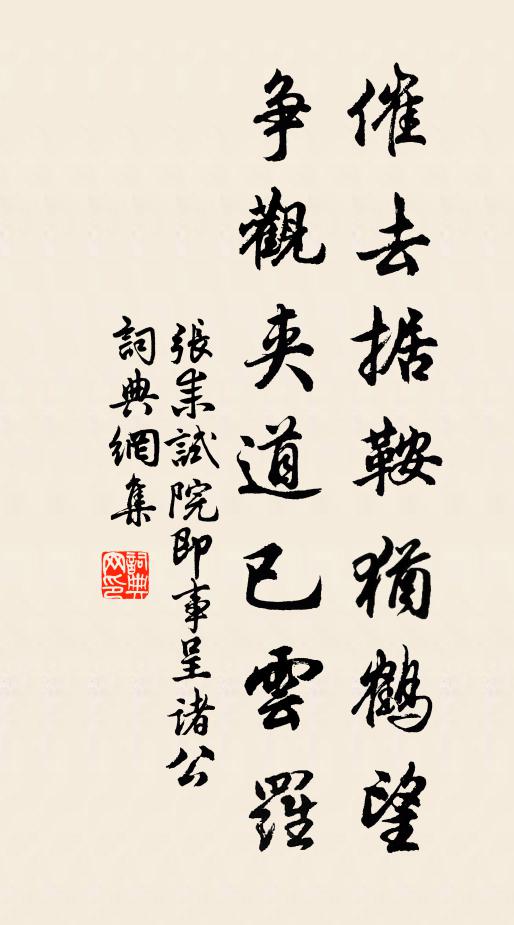 催去据鞍猶鶴望
争觀夾道已雲羅
張耒試院即事呈諸公
詞典網集
詞典
网印